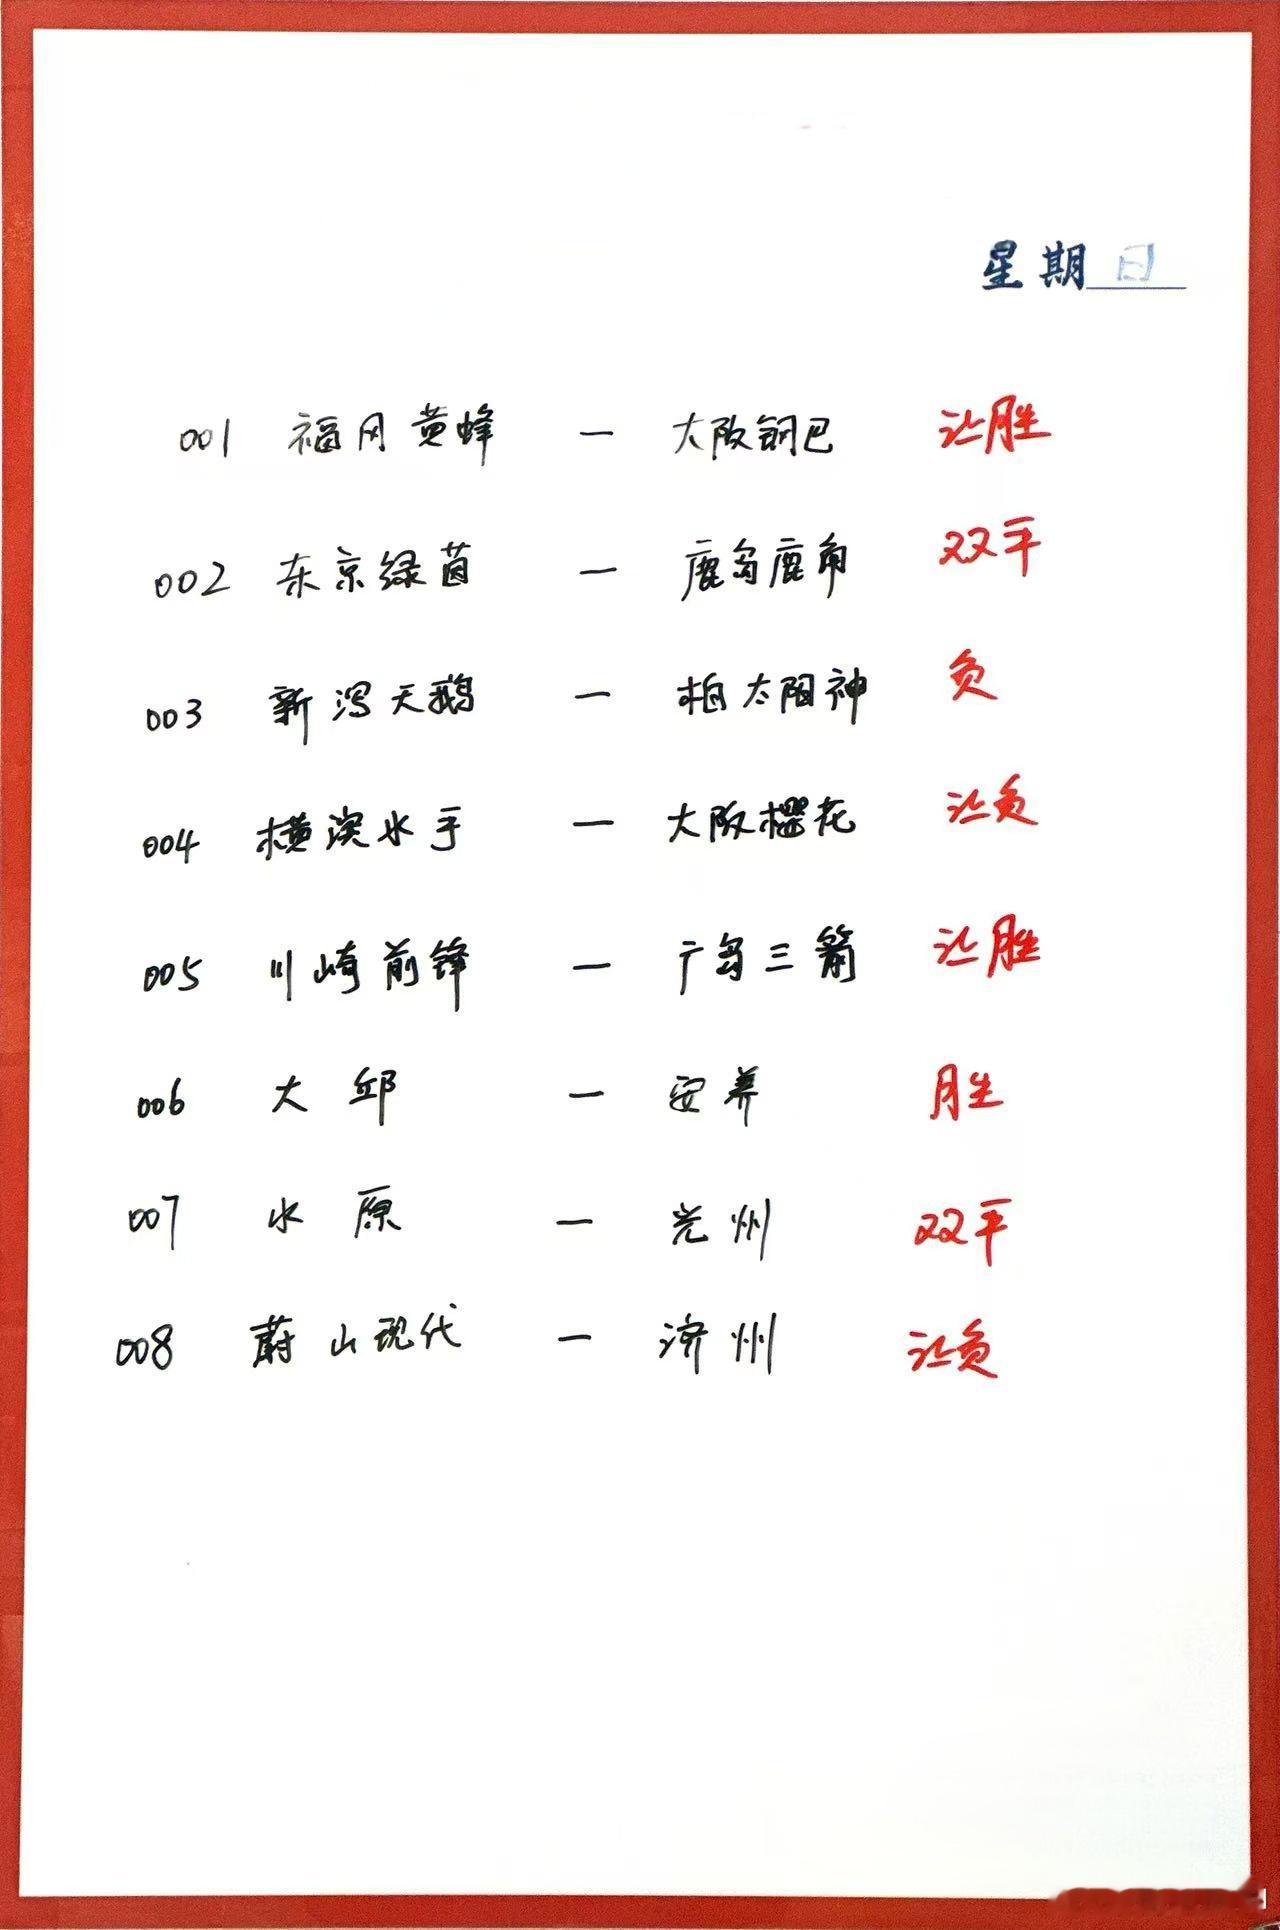 星期日
001 福冈黄蜂 — 大阪钢巴 让胜
002 东京绿茵 — 鹿岛鹿角 双平
003 新泻天鹅 — 柏太阳神 负
004 横滨水手 — 大阪樱花 让负
005 川崎前锋 — 广岛三箭 让胜
006 大邱 — 安养 胜
007 水原 — 光州 双平
008 蔚山现代 — 济州 让负